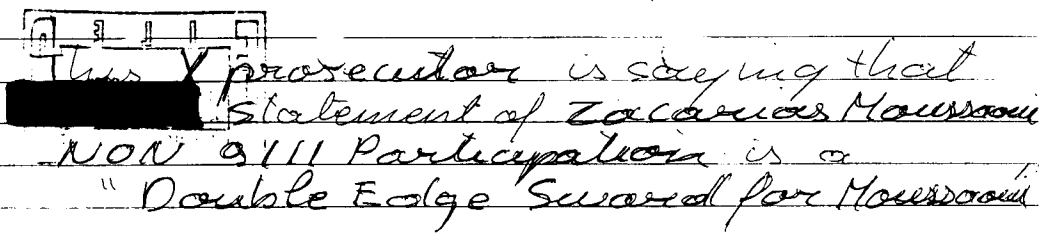 This X prosecutor is saying that
statement of Zacarias Moussaoui
NON 9/11 Participation is a
"Double Edge Sword for Moussaoui